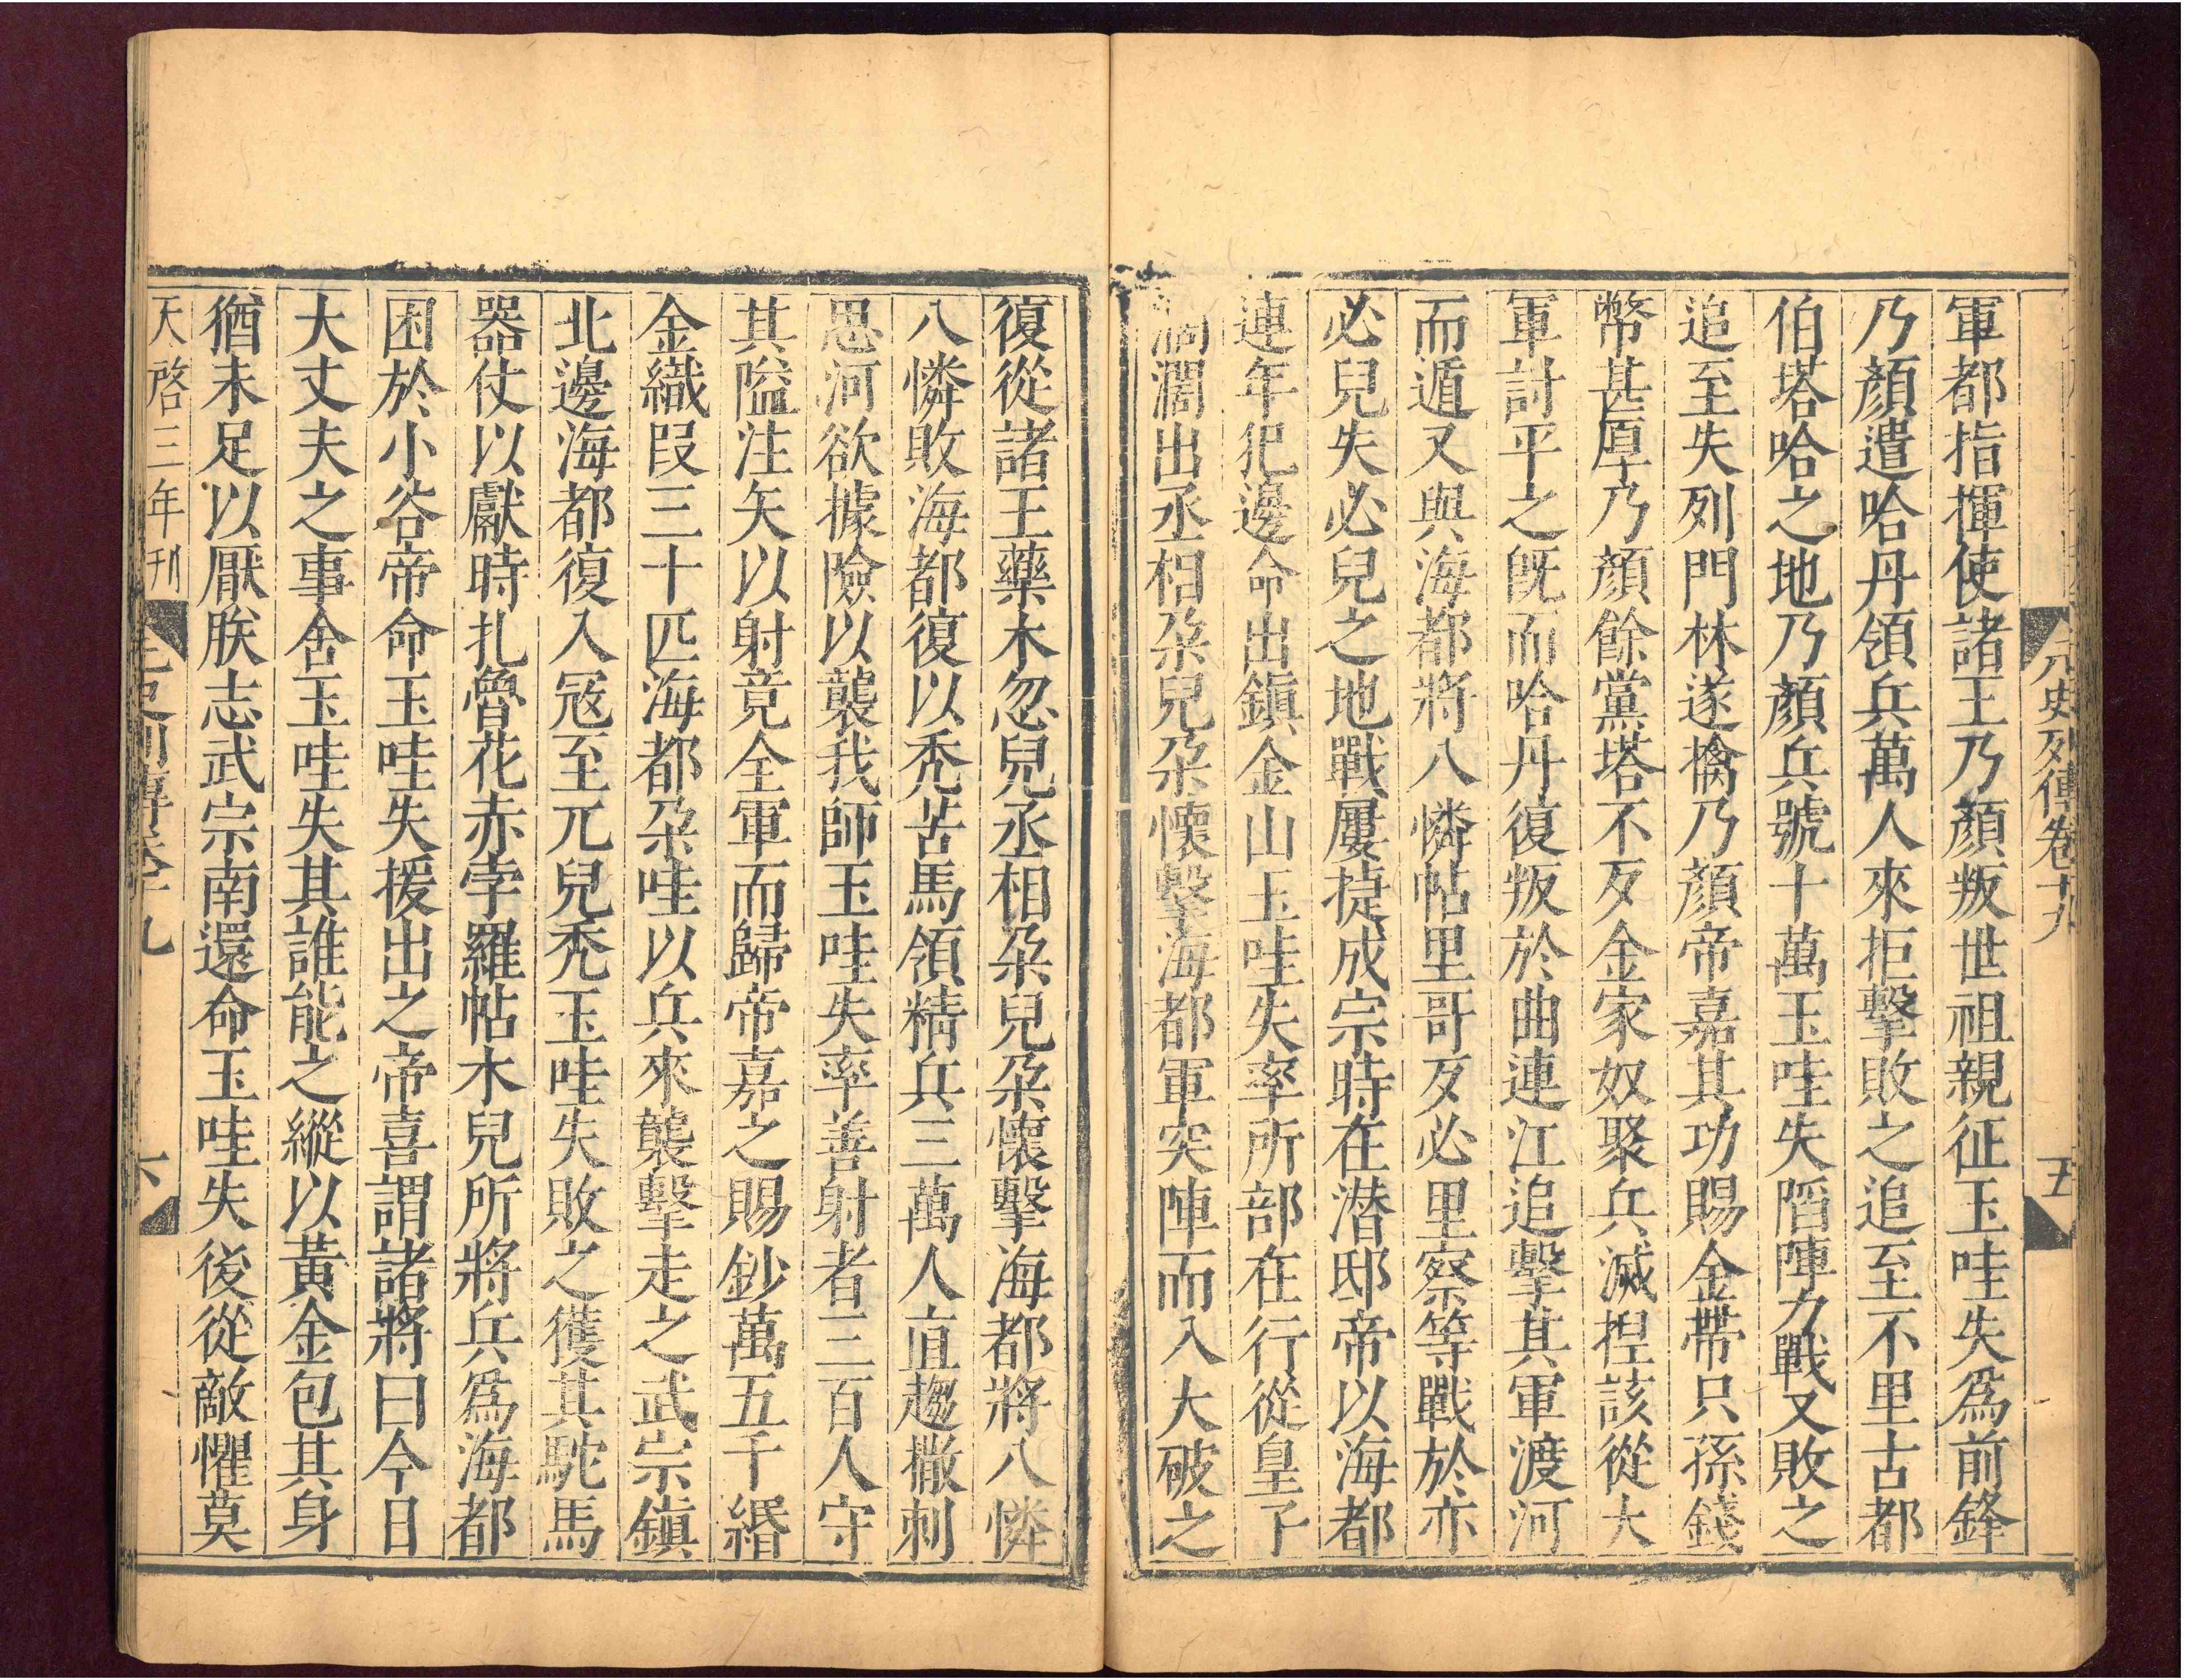 元史列傳卷十九
五
軍都指揮使諸王乃顏叛世祖親征玉哇失爲前鋒
乃顏遣哈丹領兵萬人來拒擊敗之追至不里古都
伯塔哈之地乃顏兵號十萬玉哇失陷陣力戰又敗之
追至失列門林遂擒乃顏帝嘉其功賜金帶只孫錢
幣甚厚乃顏餘黨塔不歹金家奴聚兵滅捏該從大
軍討平之旣而哈丹復叛於曲連江追擊其軍渡河
而遁又與海都將八憐帖里哥歹必里察等戰於亦
必兒失必兒之地戰屢捷成宗時在潛邸帝以海都
連年犯邊命出鎭金山玉哇失率所部在行從皇子
濶濶出丞相朶兒朶懷擊海都軍突陣而入大破之
復從諸王藥木忽兒丞相朶兒朶懷擊海都將八憐
八憐敗海都復以禿苦馬領精兵三萬人直趨撒剌
思河欲據險以襲我師玉哇失率善射者三百人守
其隘注矢以射竟全軍而歸帝嘉之賜鈔萬五千緡
金織段三十匹海都朶哇以兵來襲擊走之武宗鎭
北邊海都復入寇至兀兒禿玉哇失敗之獲其駝馬
器仗以獻時扎魯花赤孛羅帖木兒所將兵爲海都
困於小谷帝命玉哇失援出之帝喜謂諸將曰今日
大丈夫之事舍玉哇失其誰能之縱以黃金包其身
猶未足以厭朕志武宗南還命玉哇失後從敵懼莫
天啓三年刊
元史列傳卷十九
六